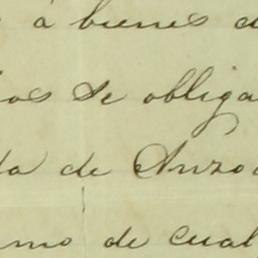 á bienes d
os se obliga
da de Anzo
mo de cual